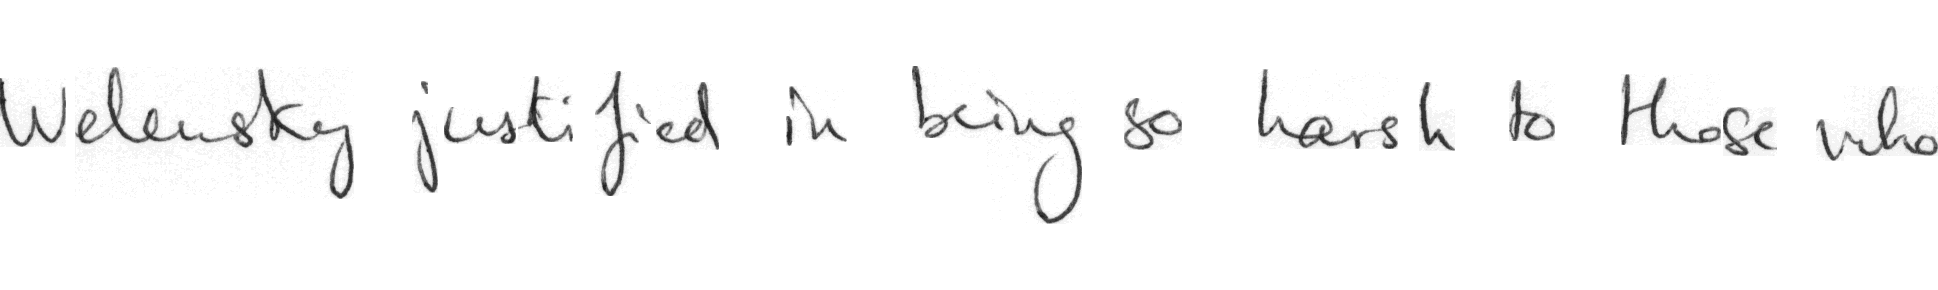 Welensky justified in being so harsh to those who